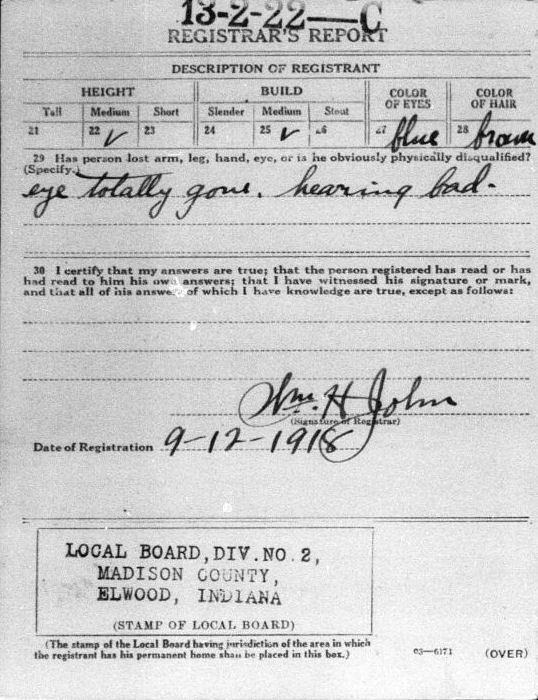 13-2-22—C
REGISTRAR'S REPORT
DESCRIPTION OF REGISTRANT
HEIGHT BUILD COLOR OF EYES COLOR OF HAIR
Tall Medium Short Slender Medium Stout
21 22 ✓ 23 24 25 ✓ 26 27 blue 28 brown
29 Has person lost arm, leg, hand, eye, or is he obviously physically disqualified?
(Specify.)
eye totally gone. hearing bad-
30 I certify that my answers are true; that the person registered has read or has
had read to him his own answers; that I have witnessed his signature or mark,
and that all of his answers of which I have knowledge are true, except as follows:
Wm. H John
(Signature of Registrar)
Date of Registration 9-12-1918
LOCAL BOARD, DIV. NO. 2,
MADISON COUNTY,
ELWOOD, INDIANA
(STAMP OF LOCAL BOARD)
(The stamp of the Local Board having jurisdiction of the area in which
the registrant has his permanent home shall be placed in this box.)
03—6171 (OVER)